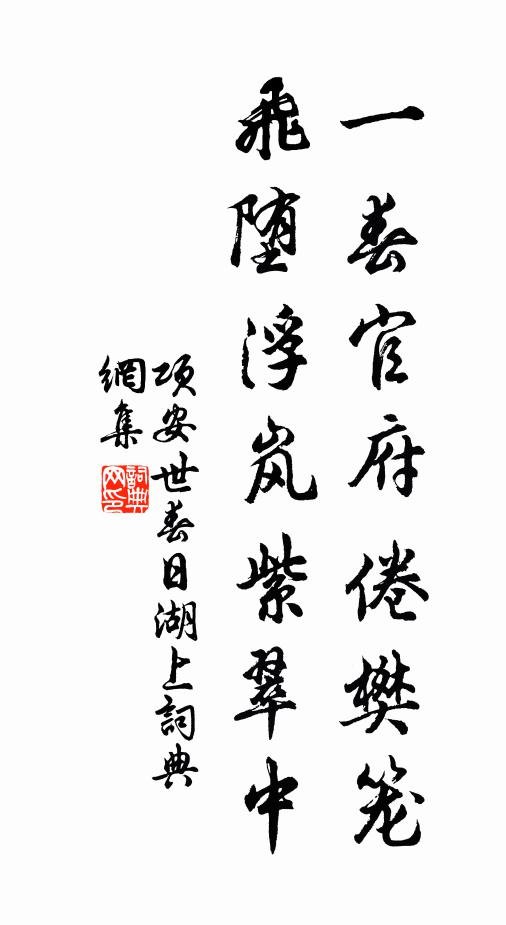 一春官府倦樊笼
飛堕浮岚紫翠中
项安世春日湖上詞典
網集
詞典
网印